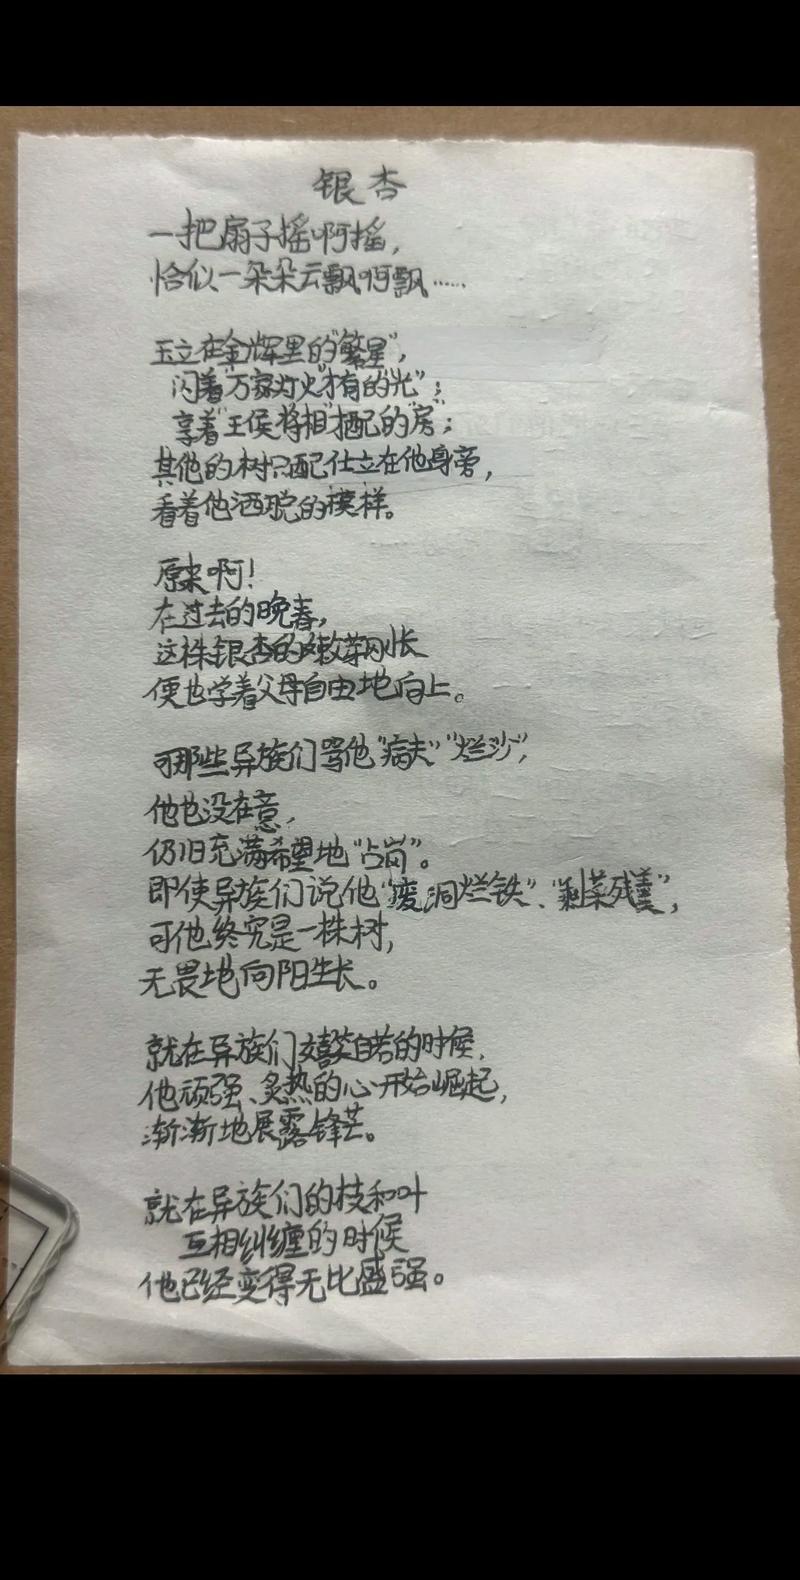 银杏
一把扇子摇啊摇，
恰似一朵朵云飘啊飘……
玉立在金辉里的“繁星”，
闪着“万家灯火”才有的“光”；
享着“王侯将相”才配的“房”；
其他的树只配伫立在他身旁，
看着他洒脱的模样。
原来啊！
在过去的晚春，
这株银杏的嫩芽刚长
便也学着父母自由地向上。
可那些异族们骂他“病夫”“烂沙”，
他也没在意，
仍旧充满希望地“占岗”。
即使异族们说他“废洞烂铁”、“剩菜残羹”，
可他终究是一株树，
无畏地向阳生长。
就在异族们嬉笑自若的时候，
他顽强、炙热的心开始崛起，
渐渐地展露锋芒。
就在异族们的枝和叶
互相纠缠的时候
他已经变得无比盛强。